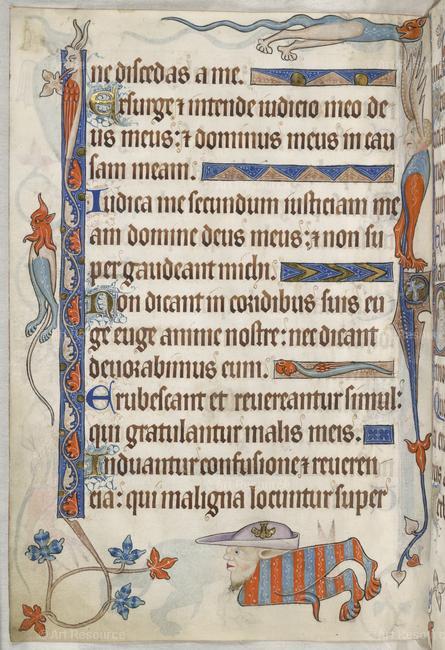 ne discedas a me.
Exsurge ⁊ intende iudicio meo de
us meus: ⁊ dominus meus in cau
sam meam.
Iudica me secundum iusticiam me
am domine deus meus: ⁊ non su
pergaudeant michi.
Non dicant in cordibus suis eu
ge euge anime nostre: nec dicant
deuorabimus eum.
Erubescant et reuereantur simul:
qui gratulantur malis meis.
Induantur confusione ⁊ reueren
cia: qui maligna locuntur super
Art Resource
Art Resource